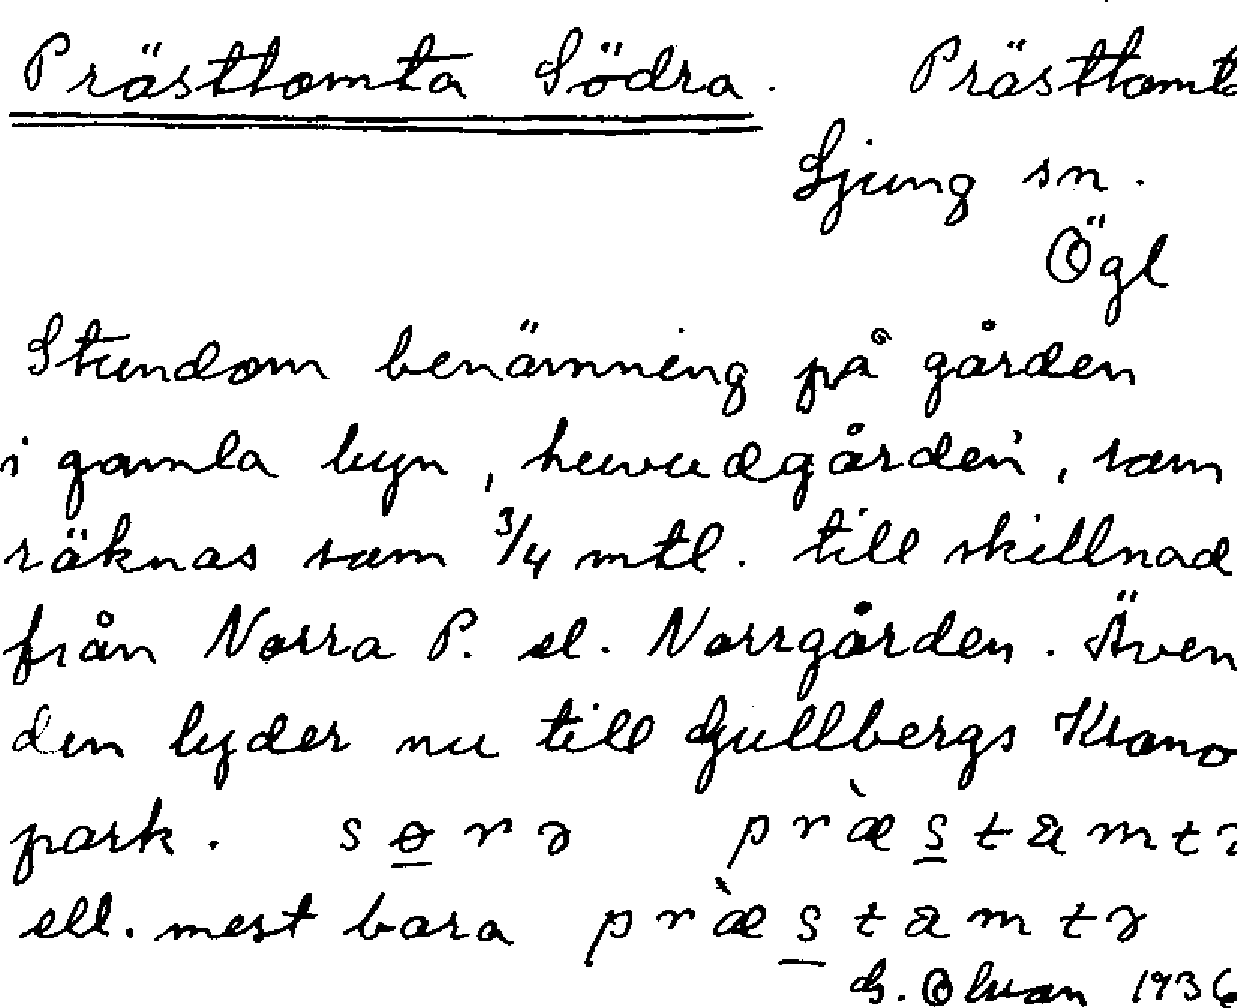 Prästtomta Södra. Prästtomta
Ljung sn.
Ögl
Stundom benämning på gården
i gamla byn, huvudgården, som
räknas som 3/4 mtl. till skillnad
från Norra P. el. Norrgården. Även
den lyder nu till Gullbergs Krono
park. 
ell. mest bara
G. 1936